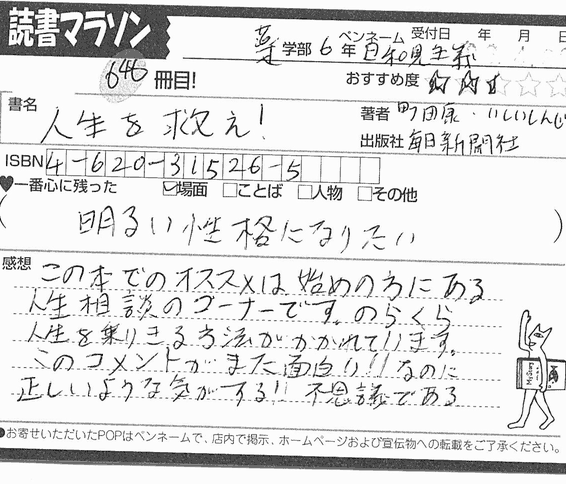 読書マラソン
646 冊目!
薬学部 6年 ペンネーム 日和見主義 受付日 年 月 日
おすすめ度 ☆☆☆☆☆
書名 人生を救え!
著者 町田康・いしいしんじ
出版社 毎日新聞社
ISBN 4-620-31526-5
♥一番心に残った ☑場面 □ことば □人物 □その他
(明るい性格になりたい)
感想 この本でのオススメは始めの方にある
人生相談のコーナーです。のらくら
人生を乗りきる方法がかかれています。
このコメントがまた面白い!!なのに
正しいような気がする!! 不思議である
Mystery
●お寄せいただいたPOPはペンネームで、店内で掲示、ホームページおよび宣伝物への転載をご了承ください。